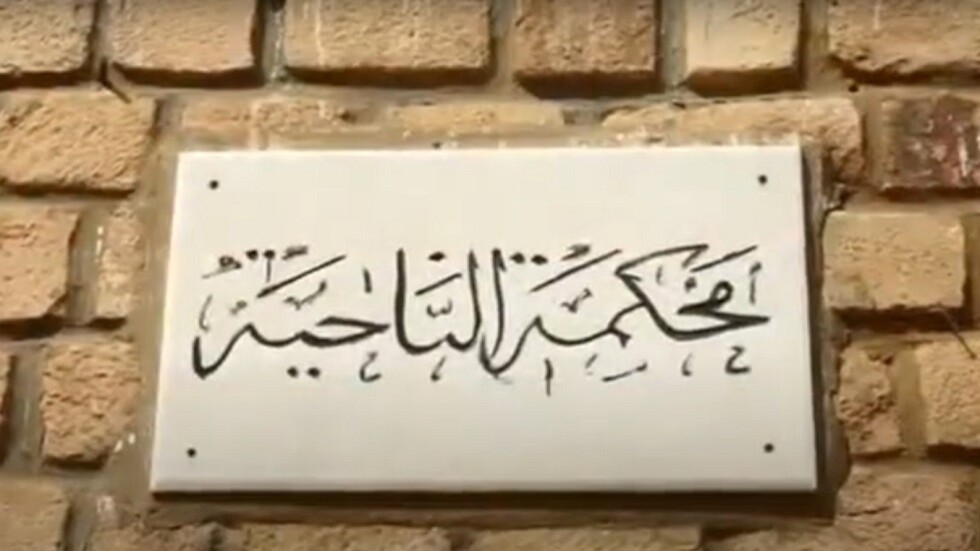 محكمة الناحية